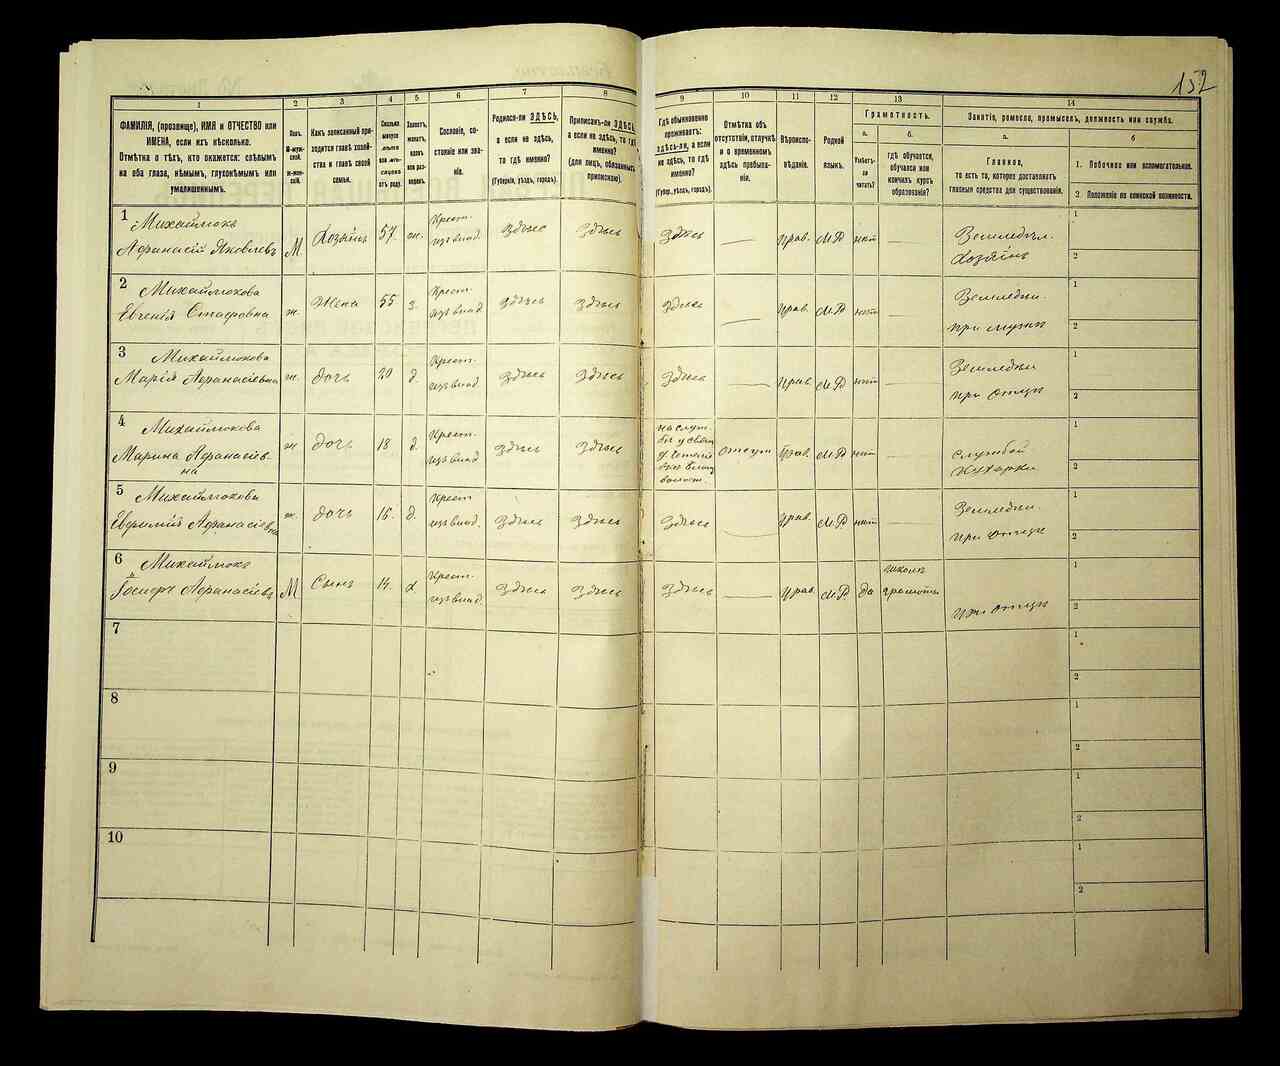 152
1
ФАМИЛІЯ, (прозвище), ИМЯ и ОТЧЕСТВО или
ИМЕНА, если ихъ нѣсколько.
Отмѣтка о тѣхъ, кто окажется: слѣпымъ
на оба глаза, нѣмымъ, глухонѣмымъ или
умалишеннымъ.
2
Полъ.
М-муж-
ской.
Ж-жен-
скій.
3
Какъ записанный при-
ходится главѣ хозяй-
ства и главѣ своей
семьи.
4
Сколько
минуло
лѣтъ
или мѣ-
сяцевъ
отъ роду.
5
Холостъ,
женатъ,
вдовъ
или раз-
веденъ.
6
Сословіе, со-
стояніе или зва-
ніе.
7
Родился-ли ЗДѢСЬ,
а если не здѣсь,
то гдѣ именно?
(Губернія, уѣздъ, городъ).
8
Приписанъ-ли ЗДѢСЬ,
а если не здѣсь, то гдѣ
именно?
(для лицъ, обязанныхъ
припискою).
9
Гдѣ обыкновенно
проживаетъ:
здѣсь-ли, а если
не здѣсь, то гдѣ
именно?
(Губер., уѣздъ, городъ).
10
Отмѣтка объ
отсутствіи, отлучкѣ
и о временномъ
здѣсь пребыва-
ніи.
11
Вѣроиспо-
вѣданіе.
12
Родной
языкъ.
13
Грамотность.
а.
Умѣетъ-
ли
читать?
б.
Гдѣ обучается,
обучался или
кончилъ курсъ
образованія?
14
Занятіе, ремесло, промыселъ, должность или служба.
а.
Главное,
то есть то, которое доставляетъ
главныя средства для существованія.
б
1. Побочное или вспомогательное.
2. Положеніе по воинской повинности.
1
Михаймюкъ
Афанасій Яковлевъ
М
Хозяинъ
57.
ж.
Крест.
изъ влад.
Здѣсь
Здѣсь
Здѣсь
—
Прав.
М.Р
нѣт
—
Земледѣл.
Хозяинъ
1
2
2
Михаймюкова
Евгенія
ж.
Жена
55
з.
Крест.
изъ влад.
Здѣсь
Здѣсь
Здѣсь
—
Прав.
М.Р
нѣт
—
Земледѣл.
при мужѣ
1
2
3
Михаймюкова
Марія Афанасіевна
ж.
дочь
20
д.
Крест.
изъ влад.
Здѣсь
Здѣсь
Здѣсь
—
Прав.
М.Р
нѣт
—
Земледѣл.
при отцѣ
1
2
4
Михаймюкова
Марина Афанасіев-
на
ж
дочь
18
д.
Крест.
изъ влад.
Здѣсь
Здѣсь
на служ
бѣ у
волост.
отсут
Прав.
М.Р
нѣт
—
службой
Кухарки
1
2
5
Михаймюкова
Евфимія Афанасіевна
ж.
дочь
16.
д.
Крест
изъ влад.
Здѣсь
Здѣсь
Здѣсь
—
Прав.
М.Р
нѣт
—
Земледѣл.
при отцѣ
1
2
6
Михаймюкъ
Іосифъ Афанасіевъ
М
Сынъ
14.
х
Крест.
изъ влад.
Здѣсь
Здѣсь
Здѣсь
—
Прав.
М.Р.
да
школѣ
грамоты
при отцѣ
1
2
7
1
2
8
1
2
9
1
2
10
1
2